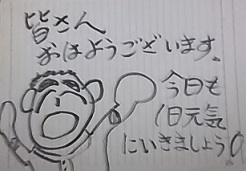 皆さん
おはようございます。
今日も
1日元気
にいきましょう